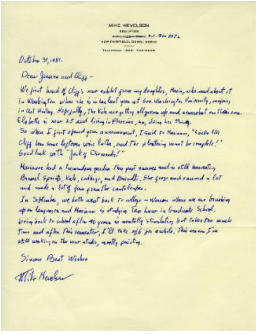 MIKE NEVELSON
SCULPTOR
October 31, 1981.
Dear Jimmie and Cliff—
We first heard of Cliff's new exhibit from my daughter, Maria, who and about it
in Washington where she is in her last year at Geo. Washington University, majoring
in Art History. Hopefully, the kids are getting all grown up and somewhat on their own.
Elsbeth is now 25 and living in Phoenix, Az, doing her thing.
So when I first heard your announcement, I said to Marianne, "
Cliff has some leftover wine bottles, and the is complete!"
Good luck with "Jack of Diamonds!"
Marianne had a tremendous garden this past summer and is still harvesting
Brussel Sprouts, Kale, cabbage, and Broccoli. She froze and canned a lot
and made a lot of from the cantaloupes.
In September, we both went back to college — Western where we are brushing
up on languages and Marianne is studying too hour in Graduate School.
Going back to school after 40 years is mentally stimulating but takes too much
time and after this semester, I'll take off for awhile. This means I'm
still working on the new studio, mostly painting.
Sincere Best Wishes
Mike Nevelson